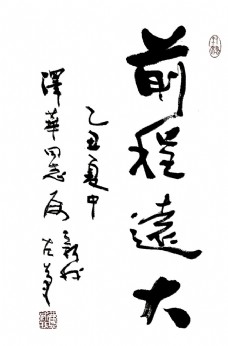 前程遠大
乙丑夏中
澤華同志